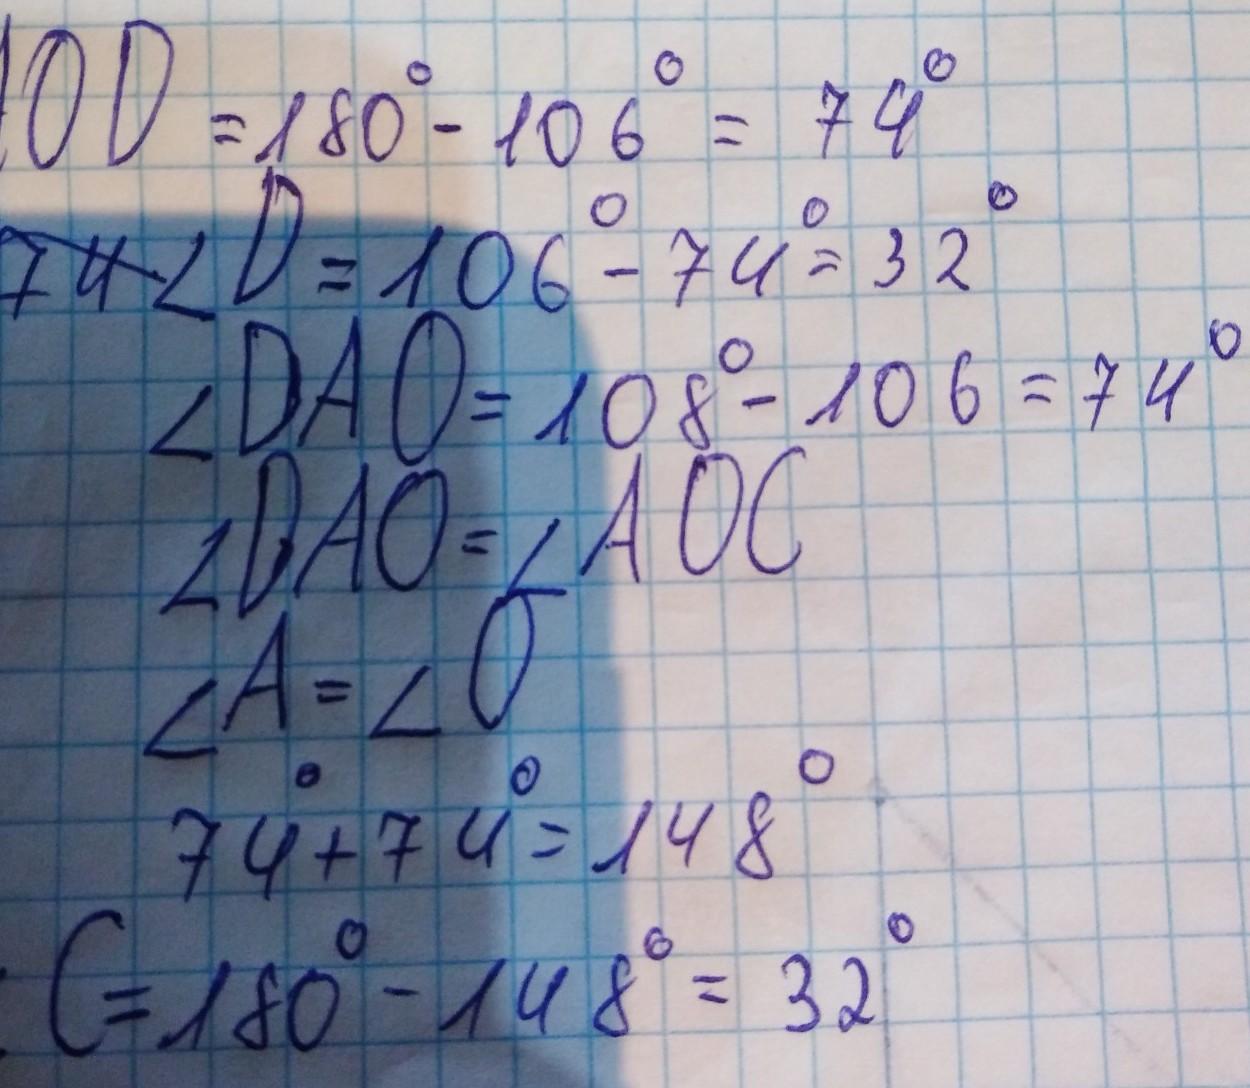 AOD = 180° - 106° = 74°
∠D = 106° - 74° = 32°
∠DAO = 108° - 106 = 74°
∠DAO = ∠AOC
∠A = ∠O
74° + 74° = 148°
C = 180° - 148° = 32°